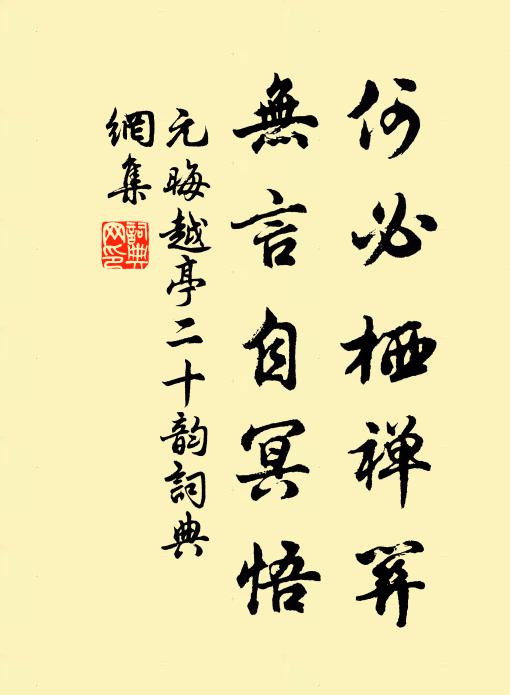 何必栖禅关
無言自冥悟
元晦越亭二十韵詞典
網集
詞典
网印